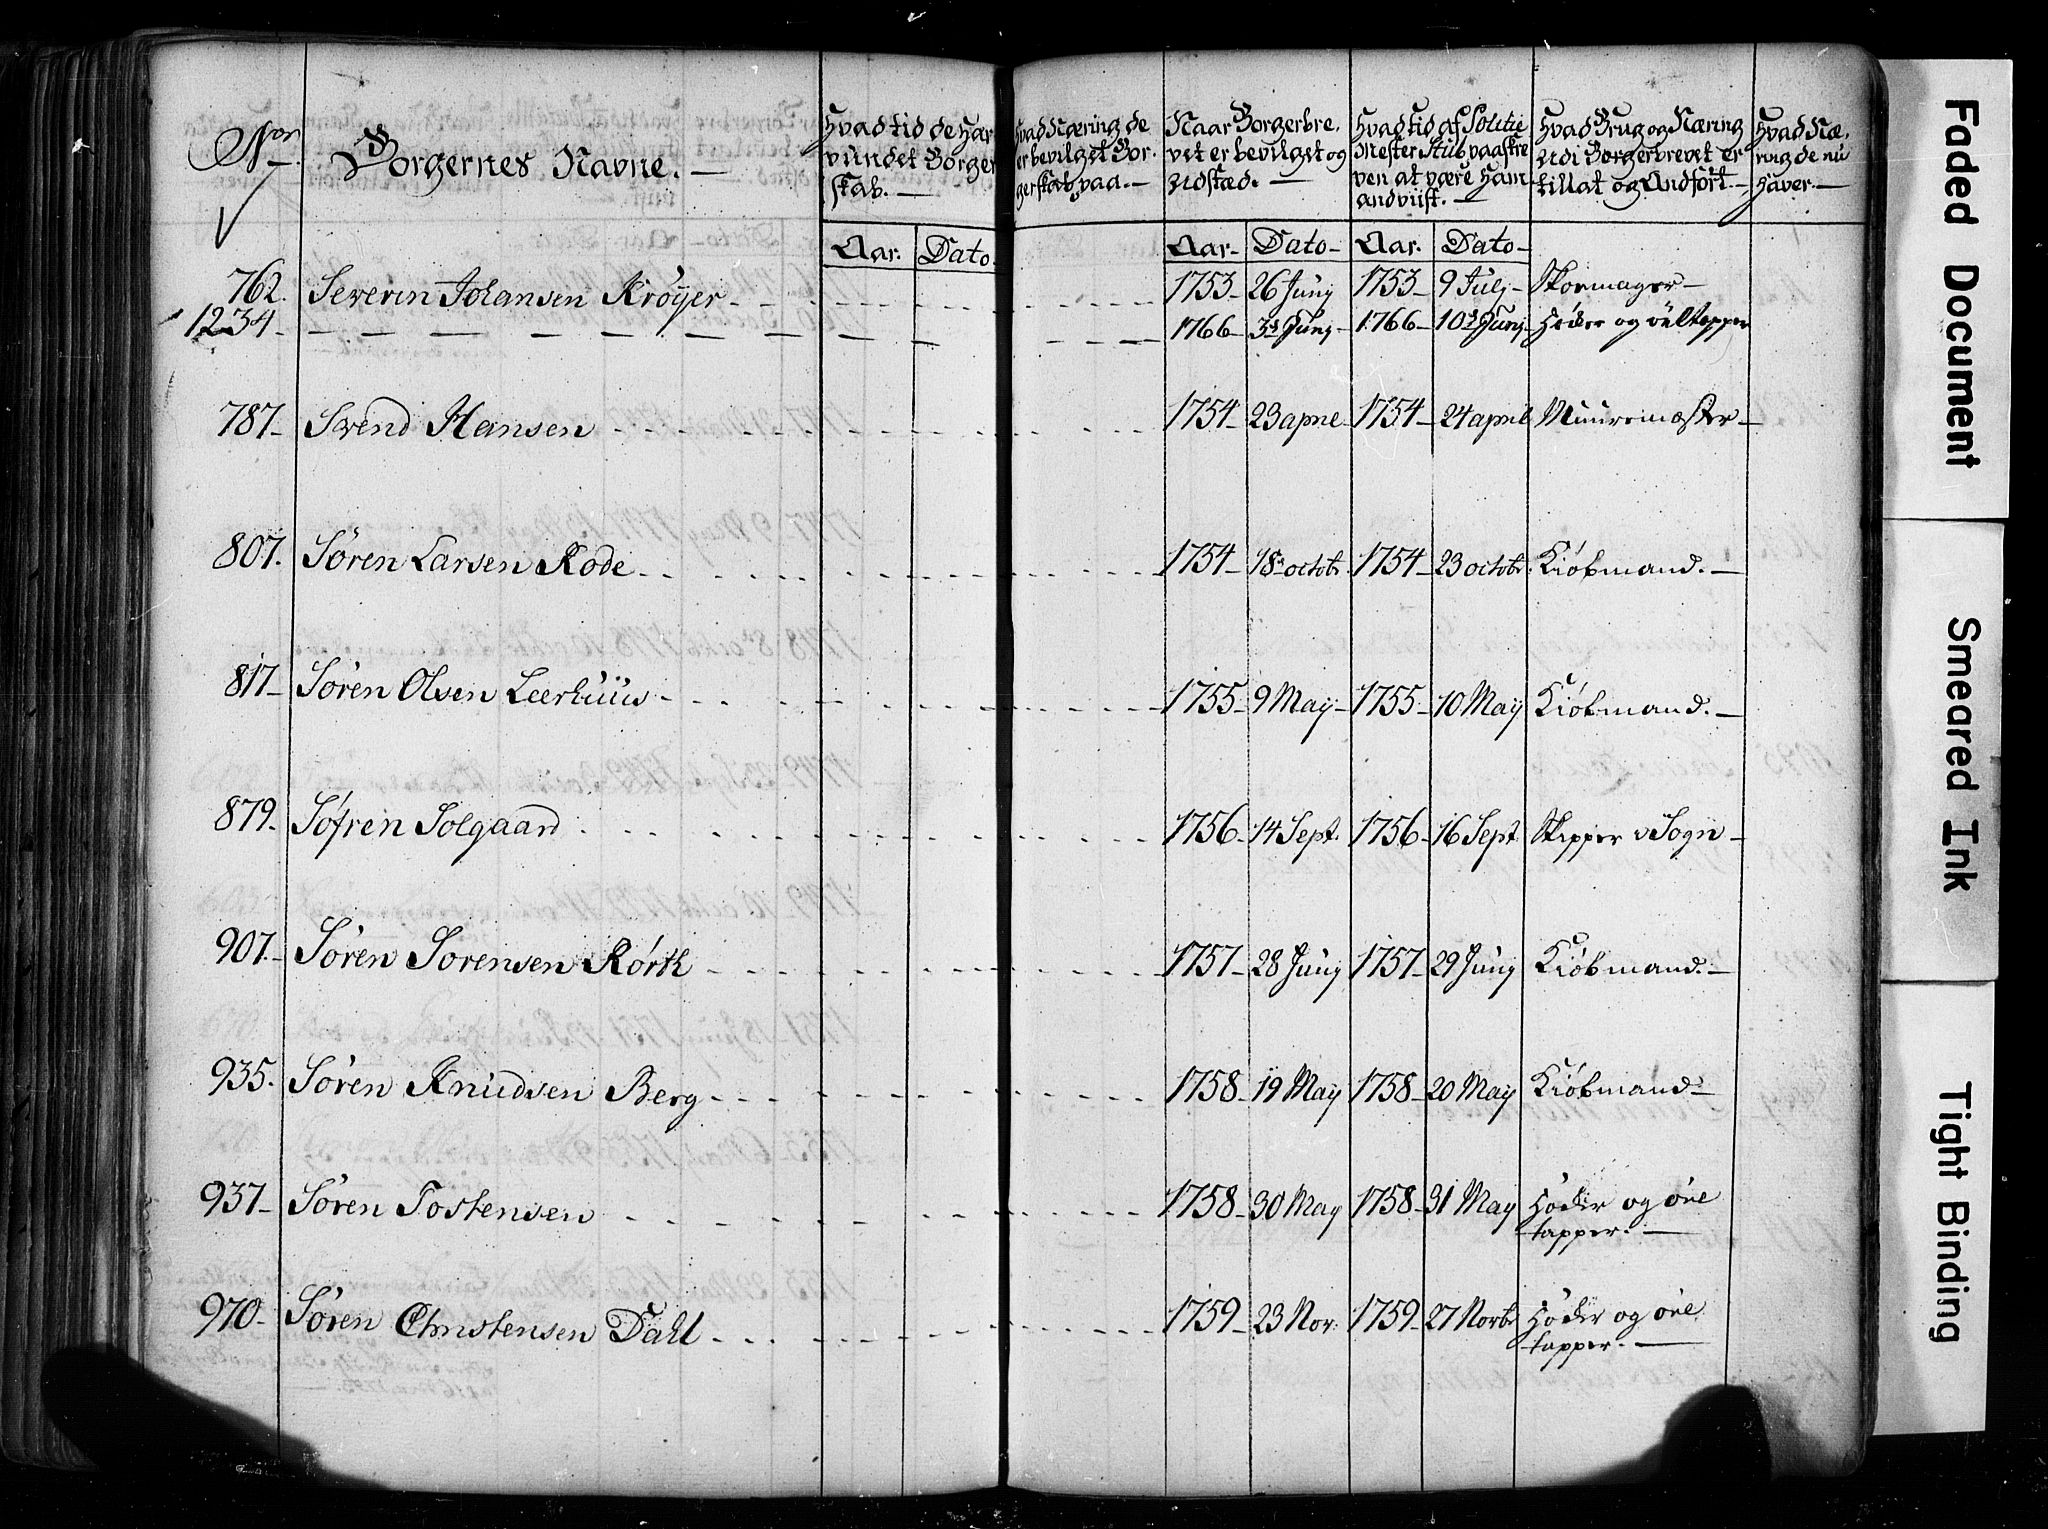 Nor
Borgernes Navne. —
Hvad tid de Har
vundet Borger
skab. —
Hvad Næring de
er bevilget Bor-
gerskab paa. —
Naar Borgerbre,
vet er bevilget og
Udstæd. —
Hvad tid af Politie
Mester Stub paaskre
ven at være Ham
andviist. —
Hvad Brug og Næring
Udi Borgerbrevet er
tillat og Andført. —
Hvad Næ,
ring de nu
Haver. —
Aar. Dato. Aar- Dato- Aar. Dato-
762. Severin Johansen Krøyer - 1753- 26 Juny 1753- 9 July- Skoemager-
1234- 1766- 3d Juny- 1766- 10d Juny- Høker og øeltapper
787- Svend Hansen 1754- 23 april 1754- 24 april Muuremæster-
807. Søren Larsen Rode 1754- 18 octobr 1754- 23 octobr. Kiøbmand. -
817- Søren Olsen Leerhuus - 1755- 9 May- 1755- 10 May Kiøbmand. -
879. Søfren Solgaard 1756- 14 Sept. 1756- 16 Sept Skipper v Sogn-
907.- Søren Sørensen Rørth 1757- 28 Juny 1757- 29 Juny Kiøbmand. -
935. Søren Knudsen Berg 1758- 19 May 1758- 20 May Kiøbmand-
937- Søren Tostensen 1758- 30 May 1758- 31 May Høker og øel
tapper. —
970- Søren Christensen Dahl 1759- 23 Nov: 1759- 27 Novbr Høker og øel
tapper. —
Faded Document
Smeared Ink
Tight Binding